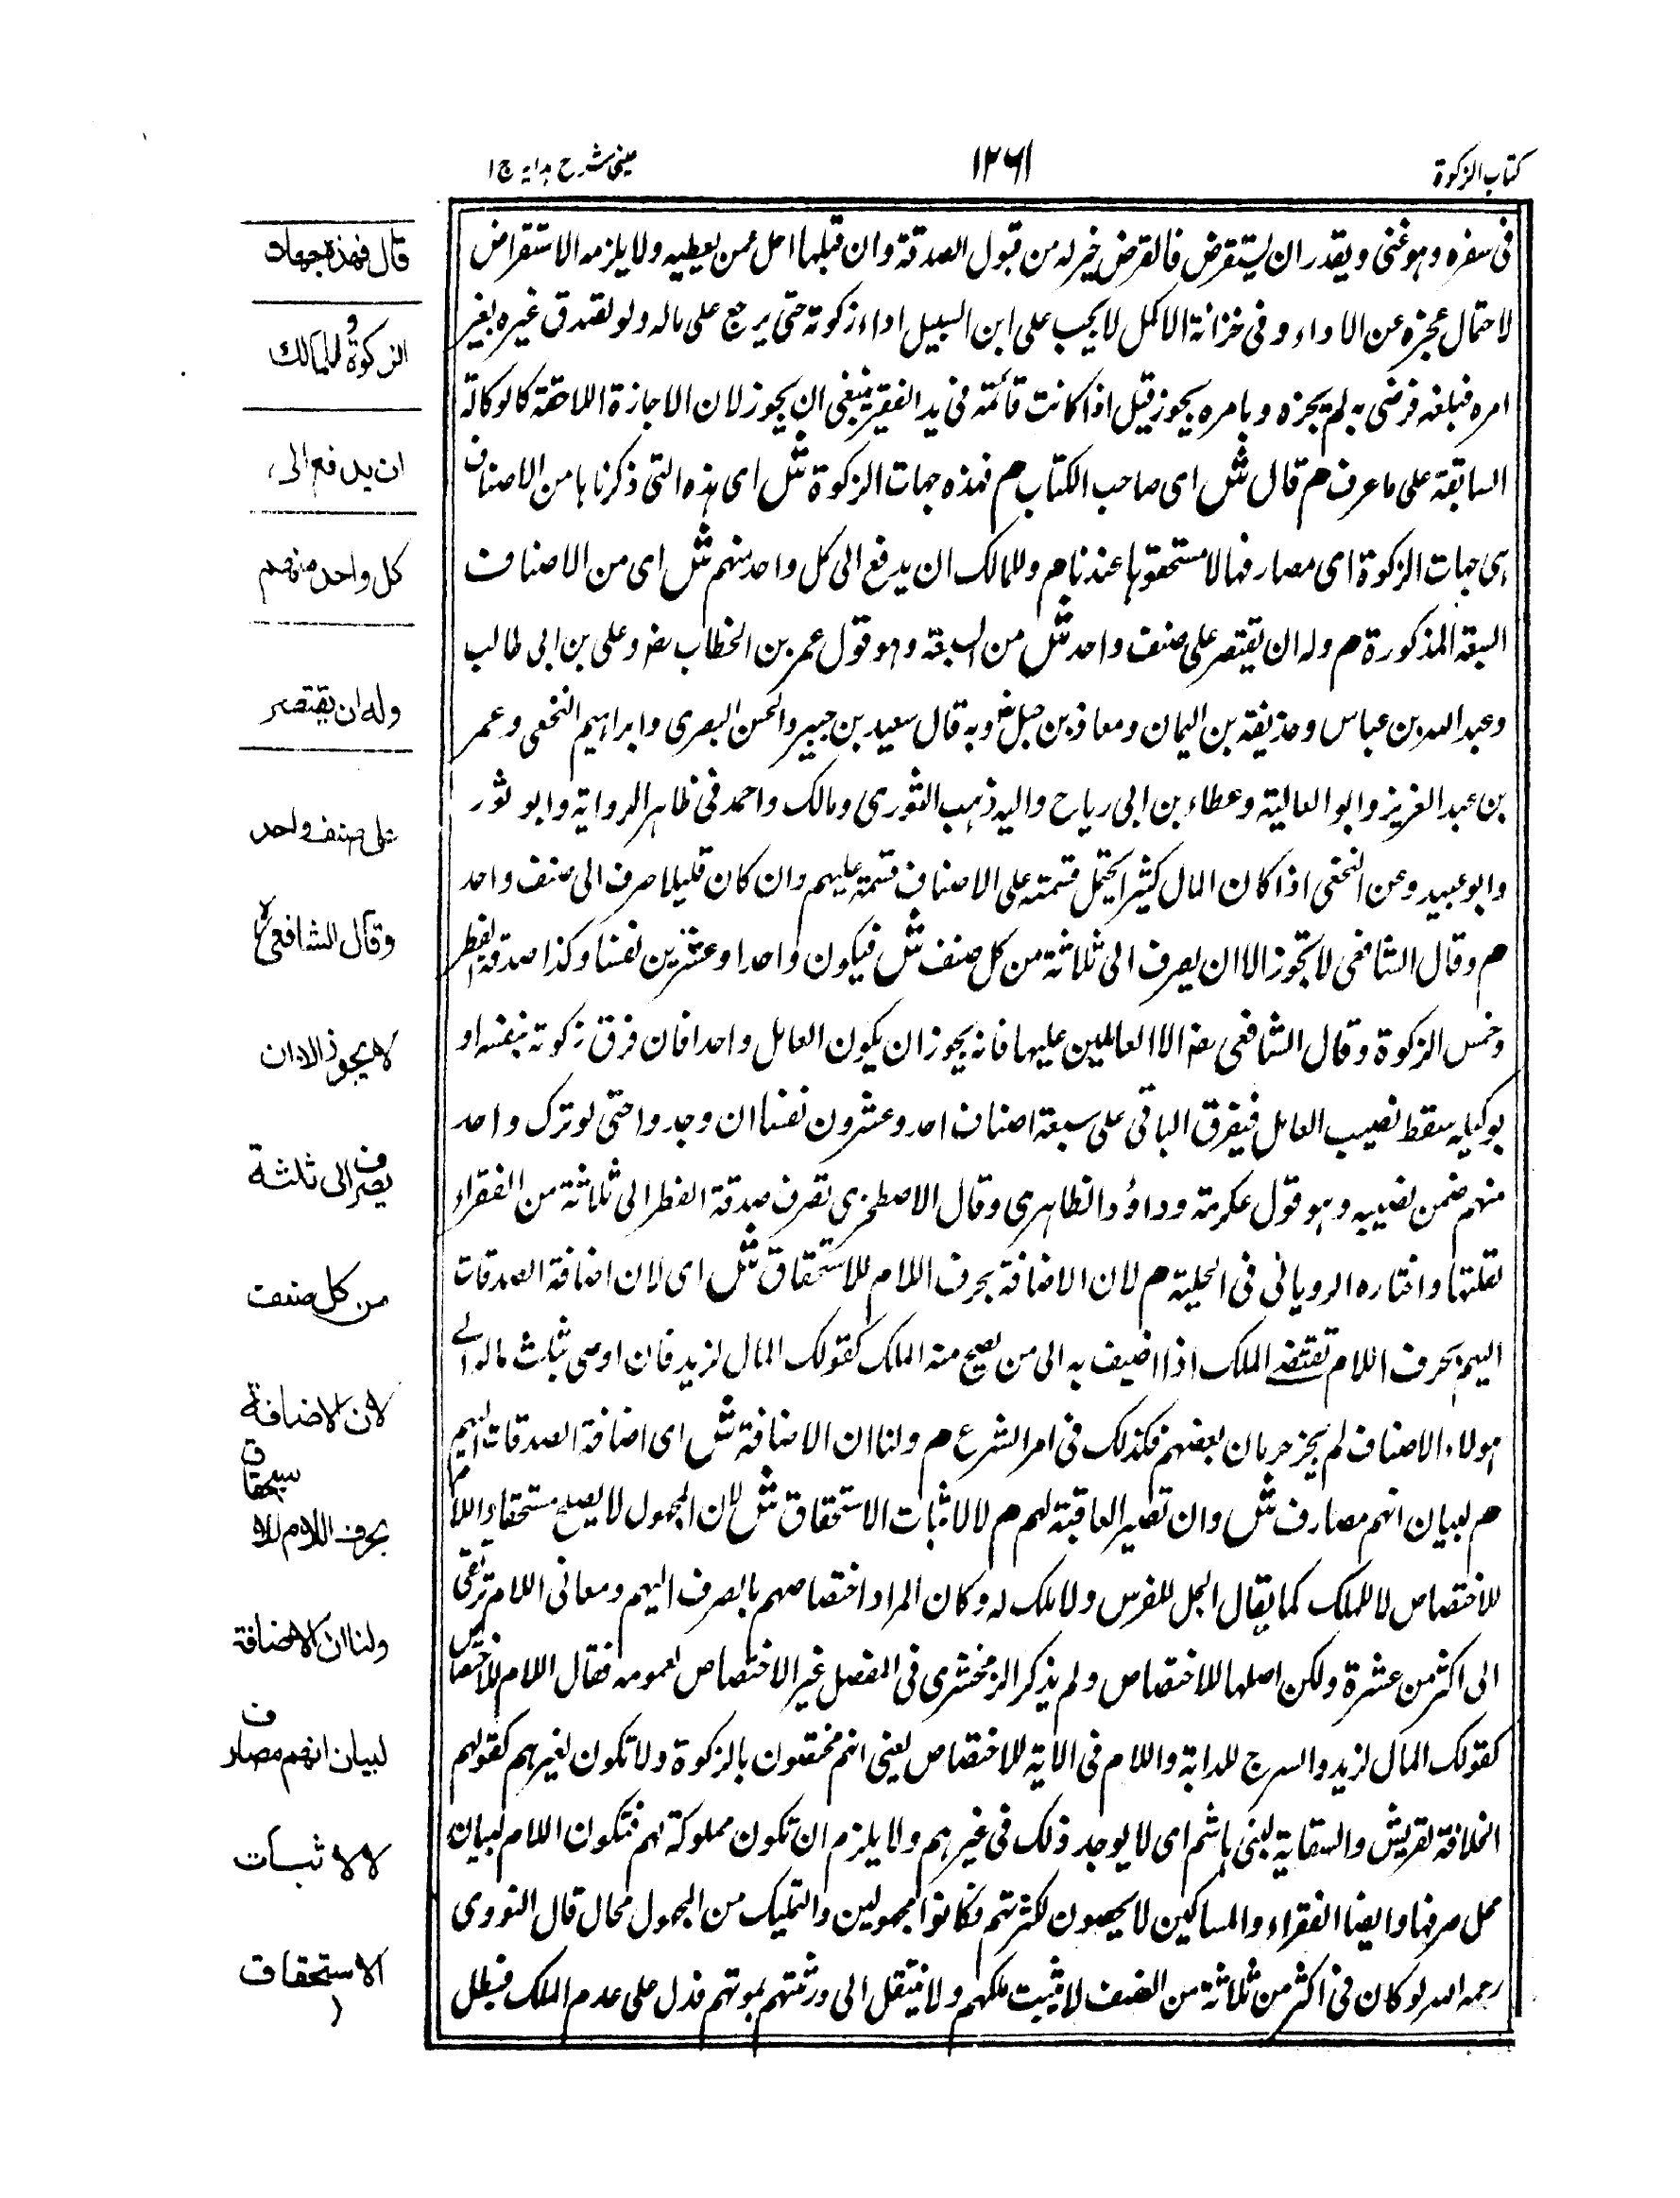 كتاب الزكوة
١٢٦١
عينى شرح هدايه ج ١
فى سفره وهو غنى ويقدر ان يستقرض فالقرض خير له من قبول الصدقة وان قبلها احل عمن يعطيه ولا يلزمه الاستقراض
لاحتمال عجزه عن الاداء وفى خزانة الاكمل لا يجب على ابن السبيل اداء زكوته حتى يرجع على ماله ولو تصدق غيره بغير
امره فبلغه فرضى به لم يجزه وبامره يجوز قيل اذا كانت قائمة فى يد الفقير ينبغى ان يجوز لان الاجازة اللاحقة كالوكالة
السابقة على ما عرف م قال ش اى صاحب الكتاب م فهذه جهات الزكوة ش اى هذه التى ذكرناها من الاصناف
هى جهات الزكوة اى مصارفها لا مستحقوها عندنا م وللمالك ان يدفع الى كل واحد منهم ش اى من الاصناف
السبعة المذكورة م وله ان يقتصر على صنف واحد ش من السبعة وهو قول عمر بن الخطاب رض وعلى بن ابى طالب
وعبد الله بن عباس وحذيفة بن اليمان ومعاذ بن جبل رض وبه قال سعيد بن جبير والحسن البصرى وابراهيم النخعى وعمر
بن عبد العزيز وابو العالية وعطاء بن ابى رياح واليه ذهب الثورى ومالك واحمد فى ظاهر الرواية وابو ثور
وابو عبيد وعن النخعى اذا كان المال كثيرا يحتمل قسمته على الاصناف قسمة عليهم وان كان قليلا صرف الى صنف واحد
م وقال الشافعى لا تجوز الا ان يصرف الى ثلاثة من كل صنف ش فيكون واحدا وعشرين نفسا وكذا صدقة الفطر
وخمس الزكوة وقال الشافعى رض الا العاملين عليها فانه يجوز ان يكون العامل واحدا فان فرق زكوته بنفسه او
بوكيله سقط نصيب العامل فيفرق الباقى على سبعة اصناف احد وعشرون نفسا ان وجدوا حتى لو ترك واحد
منهم ضمن نصيبه وهو قول عكرمة وداؤد الظاهرى وقال الاصطخرى تصرف صدقة الفطر الى ثلاثة من الفقراء
لقلتها واختاره الرويانى فى الحلية م لان الاضافة بحرف اللام للاستحقاق ش اى لان اضافة الصدقات
اليهم بحرف اللام تقتضى الملك اذا اضيف به الى من يصح منه الملك كقولك المال لزيد فان اوصى بثلث ماله الى
هولاء الاصناف لم يجز حرمان بعضهم فكذلك فى امر الشرع م ولنا ان الاضافة ش اى اضافة الصدقات اليهم
م لبيان انهم مصارف ش وان تصير العاقبة لهم م لا لاثبات الاستحقاق ش لان المجهول لا يصلح مستحقا واللام
للاختصاص لا للملك كما يقال الجل للفرس ولا ملك له وكان المراد اختصاصهم بالصرف اليهم ومعانى اللام ترتقى
الى اكثر من عشرة ولكن اصلها للاختصاص ولم يذكر الزمخشرى فى المفصل غير الاختصاص لعمومه فقال اللام للاختصاص
كقولك المال لزيد والسرج للدابة واللام فى الآية للاختصاص يعنى انهم مختصون بالزكوة ولا تكون لغيرهم كقولهم
الخلافة لقريش والسقاية لبنى هاشم اى لا يوجد ذلك فى غيرهم ولا يلزم ان تكون مملوكة لهم فتكون اللام لبيان
محل صرفها وايضا الفقراء والمساكين لا يحصون لكثرتهم فكانوا مجهولين والتمليك من المجهول محال قال النووى
رحمه الله لو كان فى اكثر من ثلاثة من الصنف لا يثبت ملكهم ولا ينتقل الى ورثتهم بموتهم فدل على عدم الملك فبطل
قال فهذه جهات
الزكوة وللمالك
ان يدفع الى
كل واحد منهم
وله ان يقتصر
على صنف واحد
وقال الشافعى رح
لا يجوز الا ان
يصرف الى ثلثة
من كل صنف
لان الاضافة
بحرف اللام للاستحقاق
ولنا ان الاضافة
لبيان انهم مصارف
لا لاثبات
الاستحقاق